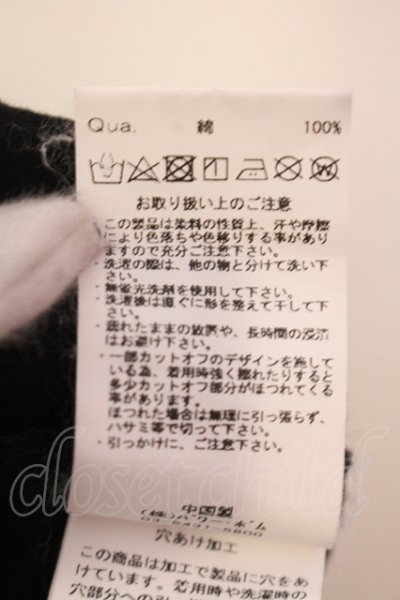 Qua. 綿 100%
お取り扱い上のご注意
・この製品は染料の性質上、汗や摩擦
により色落ちや色移りする事があり
ますので充分ご注意下さい。
・洗濯の際は、他の物と分けて洗い下
さい。
・無蛍光洗剤を使用して下さい。
・洗濯後は直ぐに形を整えて干して下
さい。
・濡れたままの放置や、長時間の浸漬
はお避け下さい。
・一部カットオフのデザインを施して
いる為、着用時強く擦れたりすると
多少カットオフ部分がほつれてくる
事があります。
ほつれた場合は無理に引っ張らず、
ハサミ等で切って下さい。
・引っかけに、ご注意下さい。
closet child
中国製
(株)パワーボム
03-5431-5800
穴あけ加工
この商品は加工で製品に穴をあ
けています。着用時や洗濯時の
穴部分への引